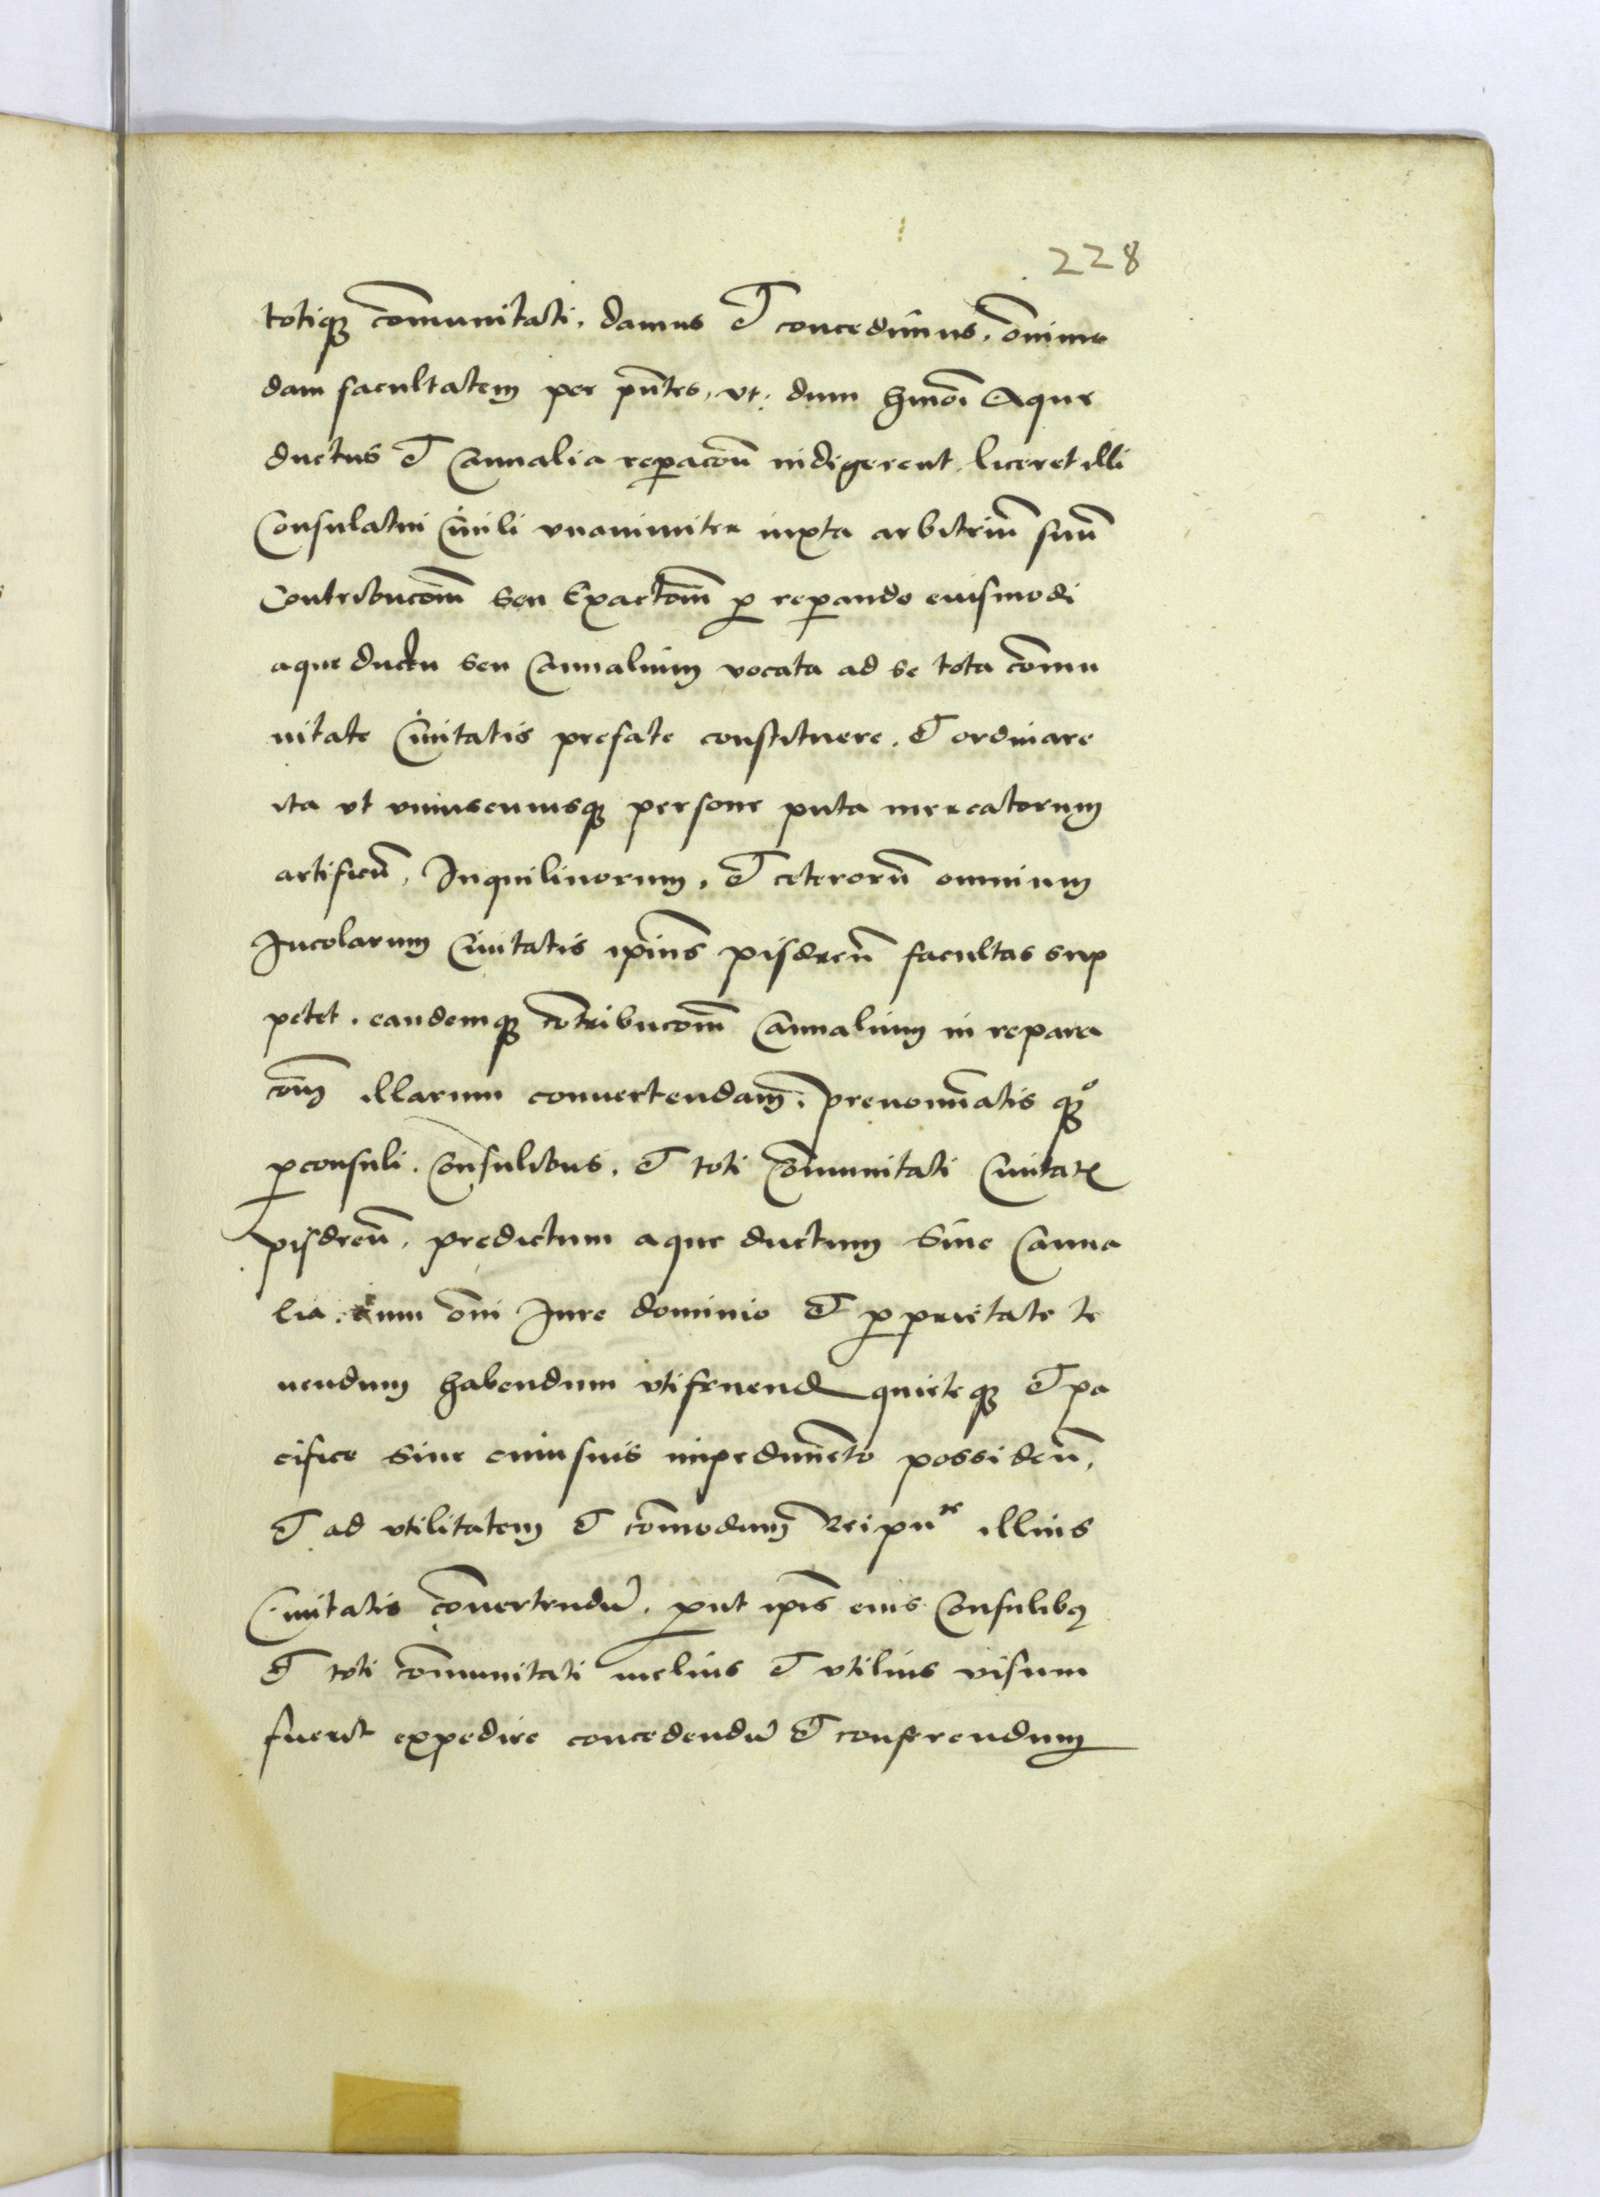 228
totiqꝫ com̄unitati. damus et concedimus. om̄imo
dam facultatem per pn̄tes, vt. dum hm̄oi Aque
ductus et Cannalia repacōn̄ indigerent. liceret illi
Consulatui Ciuili vnanimiter iuxta arbitriū suū
Contribucōm̄ seu Exactōm̄ ꝓ reꝑando eiusmodi
aque ductu seu Cannalium vocata ad se tota com̄u
nitate Ciuitatis prefate constituere. et ordinare
ita vt vniuscuiusqꝫ persone puta mercatorum
artificū, Inquilinorum, et ceterorū omnium
Incolarum Ciuitatis ipīus pisdren̄ facultas sup
petet. eandemqꝫ cōtribucōm̄ Cannalium in repara
cōm̄ illarum conuertendam̄. prenominatis qꝫo
ꝓconsuli. Consulibus. et toti Com̄unitati Ciuitatꝭ
pisdren̄. predictum aque ductum Siue Canna
lia. Cum om̄i Iure dominio et ꝓprietate te
nendum habendum vtifruend quieteqꝫ et pa
cifice Sine cuiusuis impedimēto possidēn̄.
et ad vtilitatem et com̄odum Reipuce illius
Ciuitatis cōuertendū. ꝓut ipīs eius Consulibꝫ
et toti com̄unitati melius et vtilius visum
fuerit expedire concedendū et conferendum